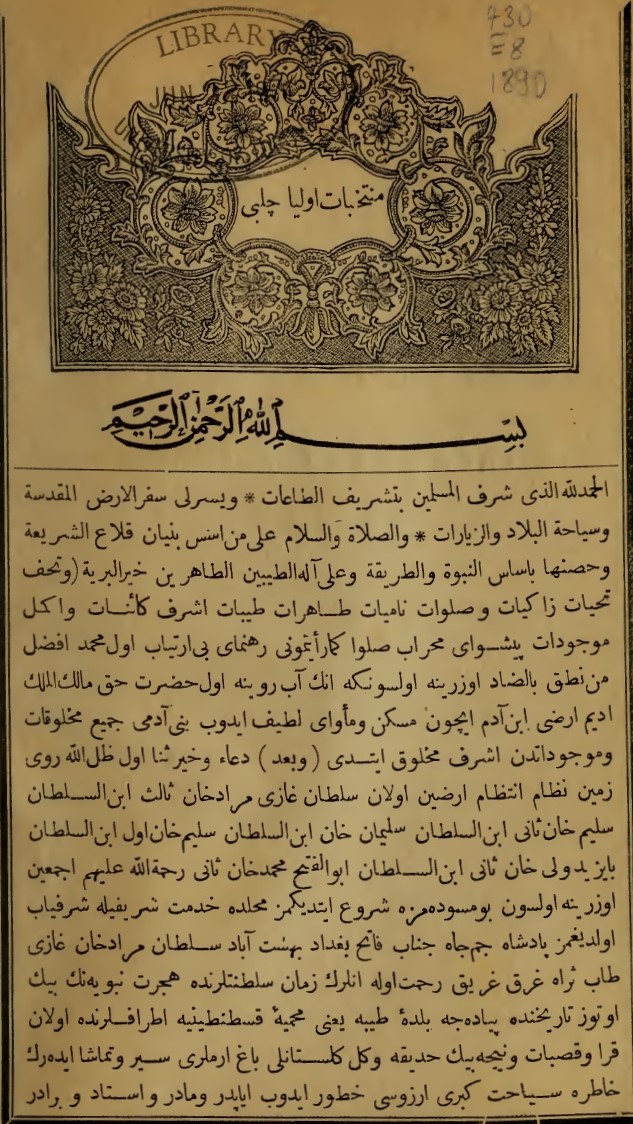 LIBRARY
JUN
730
E8
1890
منتخبات اوليا چلبى
بسم الله الرحمن الرحيم
الحمدلله الذى شرف المسلمين بتشريف الطاعات * ويسرلى سفر الارض المقدسة
وسياحة البلاد والزيارات * والصلاة والسلام على من اسس بنيان قلاع الشريعة
وحصنها باساس النبوة والطريقة وعلى آله الطيبين الطاهرين خير البرية (وتحف
تحيات زاكيات وصلوات ناميات طاهرات طيبات اشرف كائنات واكمل
موجودات پيشواى محراب صلوا كمارأيتمونى رهنماى بى ارتياب اول محمد افضل
من نطق بالضاد اوزرينه اولسونكه انك آب روينه اول حضرت حق مالك الملك
اديم ارضى ابن آدم ايچون مسكن ومأواى لطيف ايدوب بنى آدمى جميع مخلوقات
وموجوداتدن اشرف مخلوق ايتدى (وبعد) دعاء وخير ثنا اول ظل الله روى
زمين نظام انتظام ارضين اولان سلطان غازى مرادخان ثالث ابن السلطان
سليم خان ثانى ابن السلطان سليمان خان ابن السلطان سليم خان اول ابن السلطان
بايزيد ولى خان ثانى ابن السلطان ابوالفتح محمدخان ثانى رحمة الله عليهم اجمعين
اوزرينه اولسون بومسوده مزه شروع ايتديكمز محلده خدمت شريفيله شرفياب
اولديغمز پادشاه جم جاه جناب فاتح بغداد بهشت آباد سلطان مرادخان غازى
طاب ثراه غرق غريق رحمت اوله انلرك زمان سلطنتلرنده هجرت نبويه نك بيك
اوتوز تاريخنده پياده جه بلدۀ طيبه يعنى محميۀ قسطنطينيه اطرافلرنده اولان
قرا وقصبات ونيجه بيك حديقه وكل كلستانلى باغ ارملرى سير وتماشا ايده رك
خاطره سياحت كبرى ارزوسى خطور ايدوب اياپدر ومادر واستاد و برادر